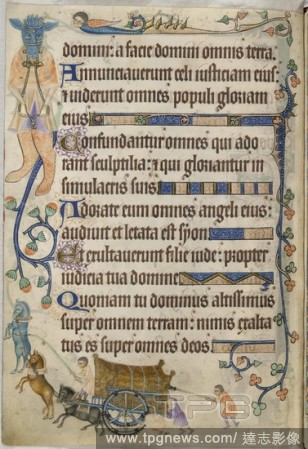 domini: a facie domini omnis terra.
Annunciauerunt celi iusticiam eius:
⁊ uiderunt omnes populi gloriam
eius
Confundantur omnes qui ado
rant sculptilia: ⁊ qui gloriantur in
simulacris suis
Adorate eum omnes angeli eius:
audiuit et letata est syon
Et exultauerunt filie iude: propter
iudicia tua domine
Quoniam tu dominus altissimus
super omnem terram: nimis exalta
tus es super omnes deos.
TPG
www.tpgnews.com/達志影像